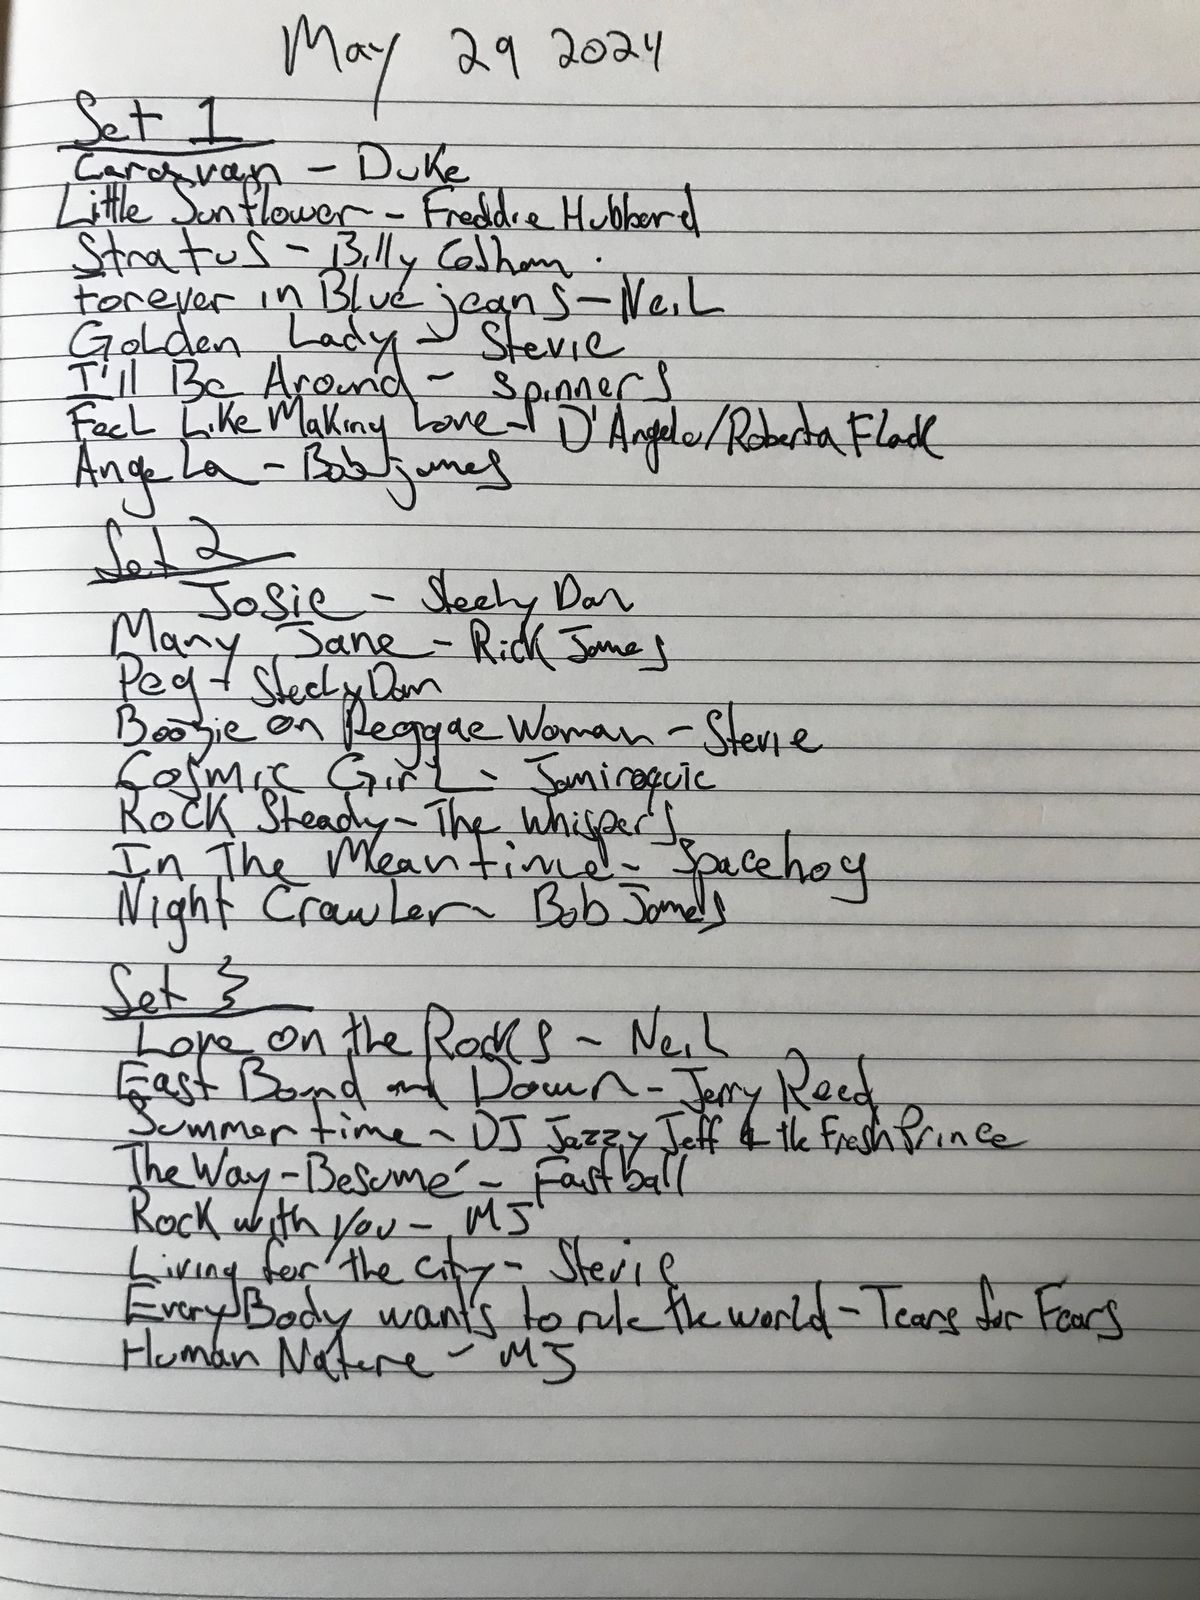 May 29 2024
Set 1
Caravan - Duke
Little Sunflower - Freddie Hubbard
Stratus - Billy Cobham.
Forever in Blue jeans - Neil
Golden Lady - Stevie
I'll Be Around - spinners
Feel Like Making Love - D'Angelo/Roberta Flack
Angela - Bob james
Set 2
Josie - Steely Dan
Mary Jane - Rick James
Peg - Steely Dan
Boogie on Reggae Woman - Stevie
Cosmic Girl - Jamiroquie
Rock Steady - The Whispers
In The Meantime - Spacehog
Night Crawler - Bob James
Set 3
Love on the Rocks - Neil
East Bond and Down - Jerry Reed
Summertime - DJ Jazzy Jeff & the Fresh Prince
The Way - Besumé - Fastball
Rock with you - MJ
Living for the city - Stevie
EveryBody wants to rule the world - Tears for Fears
Human Nature - MJ